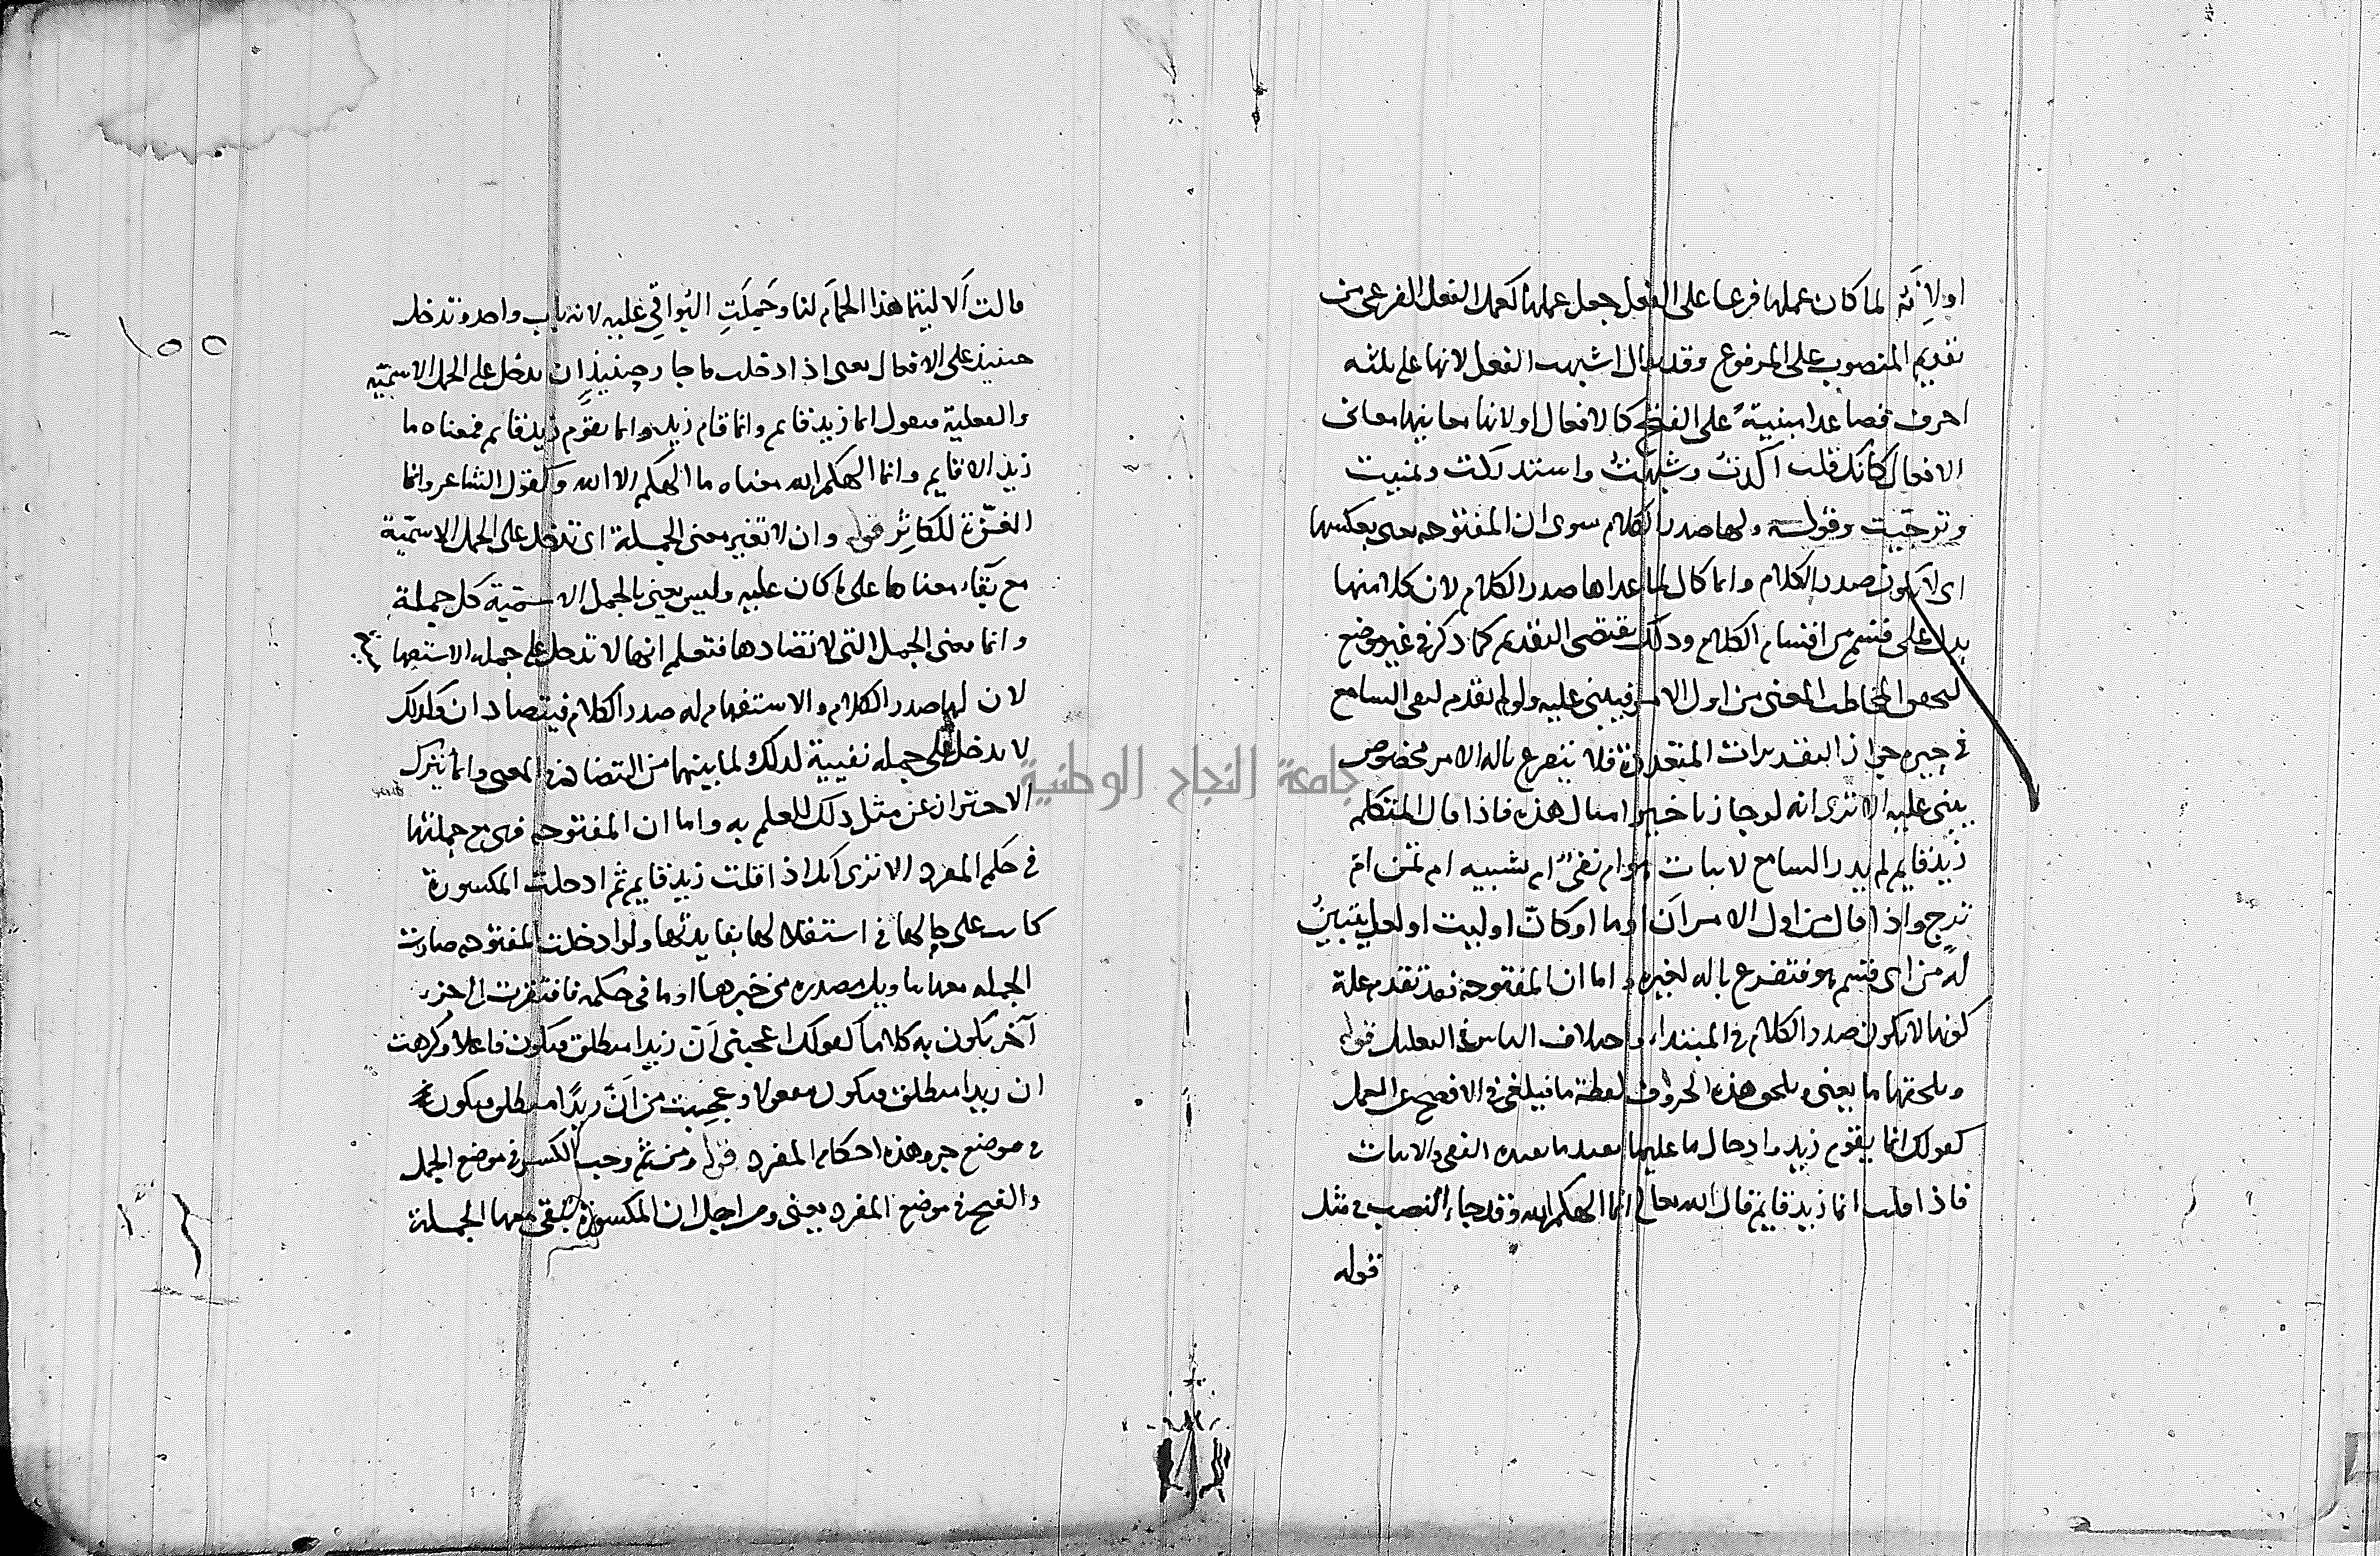 اولانه لما كان عملها فرعا على الفعل جعل عملها كعمل الفعل الفرعى من
تقديم المنصوب على المرفوع وقد يقال اشبهت الفعل لانها على ثلثه
احرف فصاعدا مبنيةً على الفتح كالافعال اولان معانيها معانى
الافعال كأنك قلت اكدتُ وشبهتُ واستدركت وتمنيت
وترجيت وقوله ولها صدر الكلام سوى ان المفتوحه فهى بعكسها
اى لا تكون صدر الكلام وانما كان لما عداها صدر الكلام لان كلا منها
يدل على قسم من اقسام الكلام وذلك يقتضى التقديم كما ذكر فى غير موضع
ليحقق المخاطب المعنى من اول الامر فيبنى عليه ولو لم يقدم لبقى السامع
فى حيره جواز التقديرات المتعددة فلا يتفرغ باله الامر مخصوص
يبنى عليه الا ترى انه لو جاز تاخير امثال هذه فاذا قال المتكلم
زيد قايم لم يدر السامع لاثبات هو ام نفىٌ ام تشبيه ام تمنٍ ام
ترج واذا قال من اول الامر انَّ او ما او كانّ او ليت او لعل يتبينُ
لهُ من اى قسم هو فتفرغ باله لغيره واما ان المفتوحة فقد تقدم علة
كونها لا تكون صدر الكلام فى المبتدا واختلاف الناس فى التعليل قوله
وتلحقها ما يعنى وتلحق هذه الحروف لفظة ما فيلغى فى الافصح عن العمل
كقولك انما يقوم زيد وادخال ما عليها يفيد ما يفيده النفى والاثبات
فاذا قلت انما زيد قايم قال الله تعالى انما الهكم الله وقد جاء النصب فى مثل
قوله
قالت ألا ليتما هذا الحمامَ لنا وحُمِلَتِ البَواقِى عليه لانه باب واحد وتدخل
حينيذ على الافعال يعنى اذا دخلت ما جاز حينيذٍ ان يدخل على الجمل الاسميّه
والفعلية فتقول انما زيد قايم وانما قام زيد وانما يقوم زيد قايم فمعناه ما
زيد الا قايم وانما الهكم الله معناه ما الهكم الا الله وكقول الشاعر وانما
العزّة للكاثِر قوله وان لا تغير معنى الجملة اى تدخل على الجمل الاسميّة
مع بَقاء معناها على ما كان عليه وليس يعنى بالجمل الاسميّة كل جملة
وانما يعنى الجمل التى لا تضادها فتعلم انها لا تدخل على جمله الاستفها م
لان لها صدر الكلام والاستفهام له صدر الكلام فيتضادان وكذلك
لا يدخل على جمله نفيية لذلك ولما بينهما من التضاد فى المعنى وانما يترك
الاحتراز عن مثل ذلك للعلم به واما ان المفتوحه فهى مع جملتها
فى حكم المفرد الا ترى انك اذا قلت زيد قايم ثم ادخلت المكسورة
كانت على حالها فى استقلالها بفايدتها ولو ادخلت المفتوحه صارت
الجمله معها بتاويل مصدر من خبرها او ما فى حكمه فافتقرت الى جزء
آخر يكون به كلاما كقولك اعجبنى اَنّ زيدا منطلق فيكون فاعلا وكرهت
ان زيدا منطلق فيكون مفعولا وعجبت من اَنّ زيدًا منطلق فيكون
فى موضع جر وهذه احكام المفرد قوله ومن ثم وجب الكسر فى موضع الجمل
والفتح فى موضع المفرد يعنى ومن اجل ان المكسورة تبقى معها الجملة